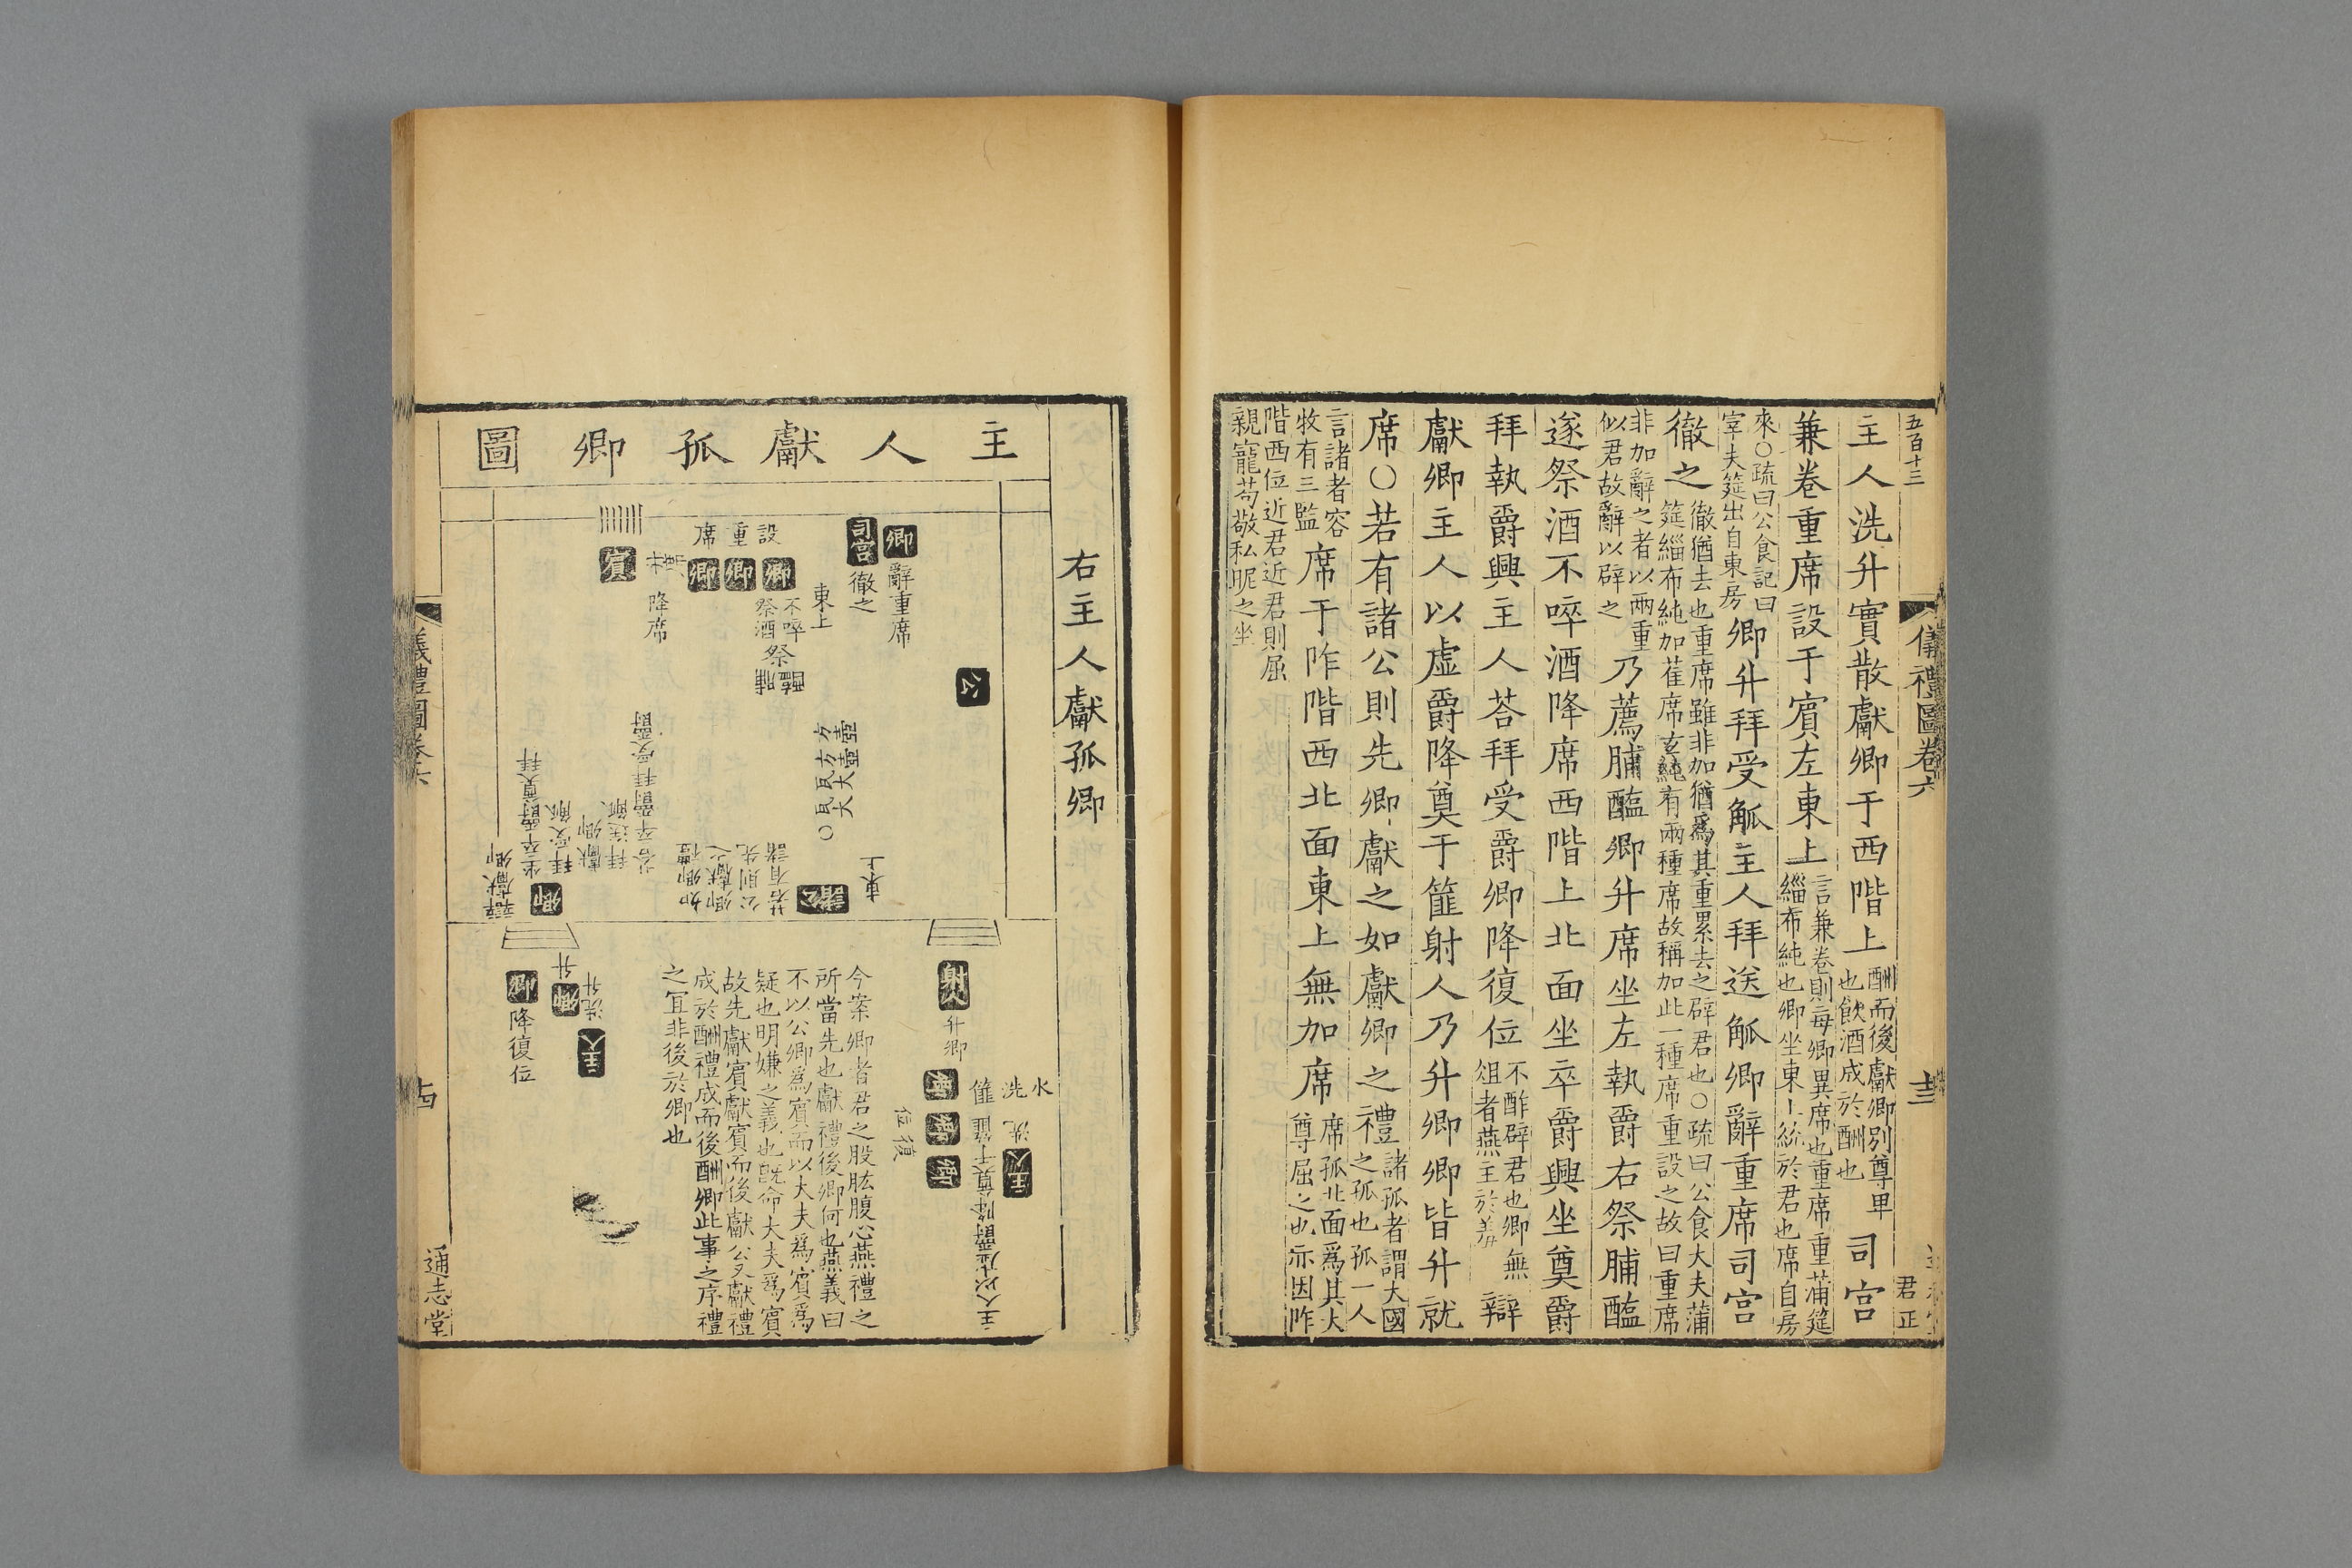 五百十三
儀禮圖卷六
君正
主人洗升實散獻卿于西階上酬而後獻卿別尊卑也飲酒成於酬也司宮
兼卷重席設于賓左東上言兼卷則每卿異席也重席重蒲筵緇布純也卿坐東上統於君也席自房
來○疏曰公食記曰宰夫筵出自東房卿升拜受觚主人拜送觚卿辭重席司宮
徹之徹猶去也重席雖非加猶爲其重累去之辟君也○疏曰公食大夫蒲筵緇布純加萑席玄純有兩種席故稱加此一種席重設之故曰重席
非加辭之者以兩重似君故辭以辟之乃薦脯醢卿升席坐左執爵右祭脯醢
遂祭酒不啐酒降席西階上北面坐卒爵興坐奠爵
拜執爵興主人荅拜受爵卿降復位不酢辟君也卿無俎者燕主於羞辯
獻卿主人以虛爵降奠于篚射人乃升卿卿皆升就
席○若有諸公則先卿獻之如獻卿之禮諸孤者謂大國之孤也孤一人
言諸者容牧有三監席于阼階西北面東上無加席席孤北面爲其大尊屈之也亦因阼
階西位近君近君則屈親寵苟敬私昵之坐
右主人獻孤卿
主人獻孤卿圖
卿
辭重席
司宮
徹之
東上
設重席
卿
卿
卿
不啐
祭酒
祭脯醢
降席
賓
公
方方瓦瓦大○
壺壺大大
東上
諸公
若有諸
公則先
卿獻之
如獻卿
禮
荅卒爵拜受爵
拜送觚
獻卿
拜受觚
坐卒爵奠爵拜
卿
辯獻卿
升
洗升
卿
主人
卿
降復位
射人
升卿
卿
卿
卿
復位
水
洗
篚
洗
主人
主人以虛爵降奠于篚
今案卿者君之股肱腹心燕禮之
所當先也獻禮後卿何也燕義曰
不以公卿爲賓而以大夫爲賓爲
疑也明嫌之義也既命大夫爲賓
故先獻賓獻賓而後獻公又獻禮
成於酬禮成而後酬卿此事之序禮
之宜非後於卿也
儀禮圖卷六
通志堂